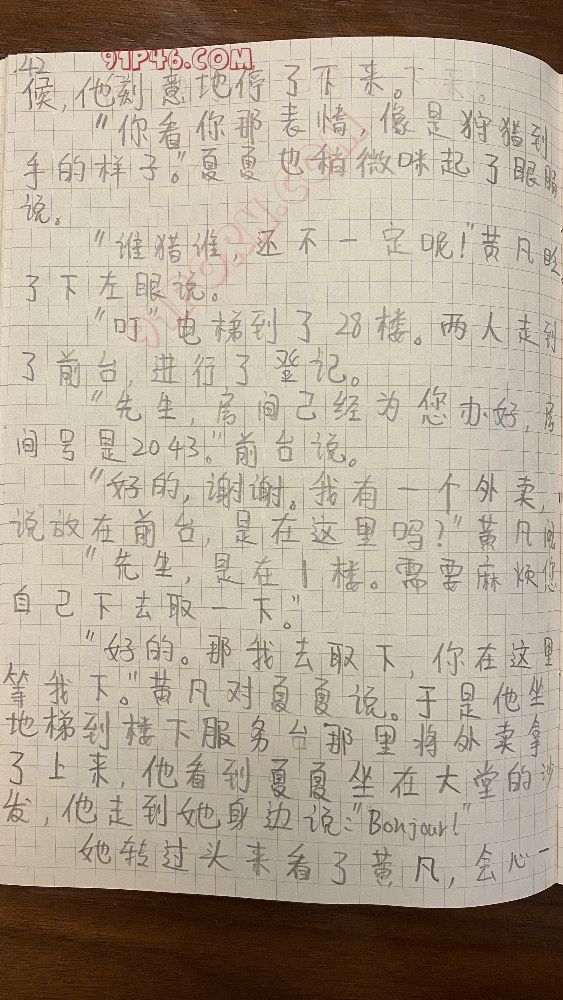 91P46.COM
42
候，他刻意地停了下来。下来。
“你看你那表情，像是狩猎到
手的样子。”夏夏也稍微咪起了眼睛
说。
“谁猎谁，还不一定呢！”黄凡眨
了下左眼说。
“叮”电梯到了28楼。两人走到
了前台，进行了登记。
“先生，房间己经为您办好，房
间号是2043。”前台说。
“好的，谢谢。我有一个外卖，
说放在前台，是在这里吗？”黄凡问
“先生，是在1楼。需要麻烦您
自己下去取一下。”
“好的。那我去取下，你在这里
等我下。”黄凡对夏夏说。于是他坐
地梯到楼下服务台那里将外卖拿
了上来，他看到夏夏坐在大堂的沙
发，他走到她身边说：“Bonjour!”
她转过头来看了黄凡，会心一